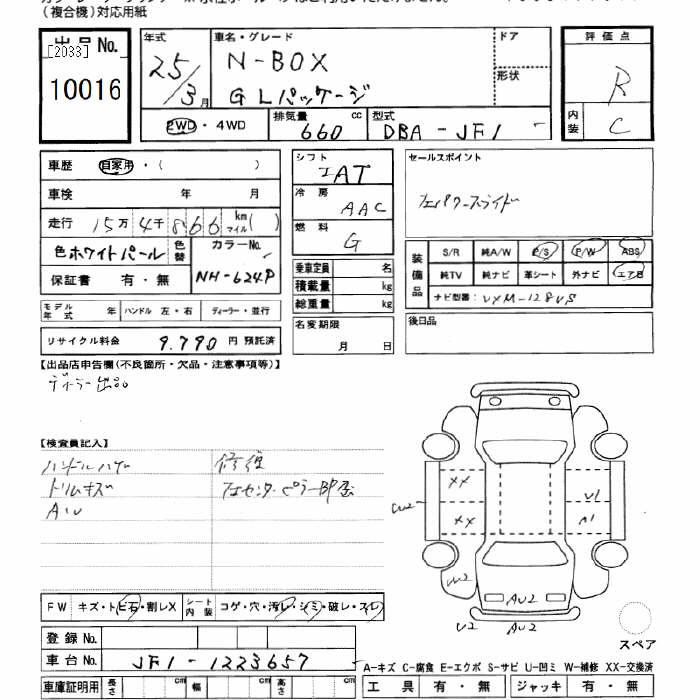 (複合機)対応用紙
出品No.
[2033]
10016
年式
25/3月
車名・グレード
N-BOX
GLパッケージ
ドア
形状
2WD・4WD
排気量 660 cc
型式 DBA-JF1
評価点
R
内装 C
車歴 自家用・( )
車検 年 月
走行 15万4千866 km マイル( )
色ホワイトパール 色替
カラーNo. NH-624P
保証書 有・無
シフト
IAT
冷房
AAC
燃料
G
乗車定員 名
積載量 kg
総重量 kg
セールスポイント
装備品
S/R 純A/W P/S P/W ABS
純TV 純ナビ 革シート 外ナビ エアB
ナビ型番: VXM-128VS
モデル年式 年 ハンドル 左・右 ディーラー・並行
名変期限
月 日
後日品
リサイクル料金 9.790 円 預託済
【出品店申告欄(不良箇所・欠品・注意事項等)】
ディーラー出品
【検査員記入】
トリムキズ
修復
XX
XX
U1
A1
W2
W2
AU2
U2 AU2
スペア
FW キズ・トビ石・割レX
シート内装 コゲ・穴・汚レ・シミ・破レ・スレ
登録No.
車台No. JF1-1223657
A-キズ C-腐食 E-エクボ S-サビ U-凹ミ W-補修 XX-交換済
車庫証明用 長さ cm 幅 cm 高さ cm
工具 有・無 ジャッキ 有・無